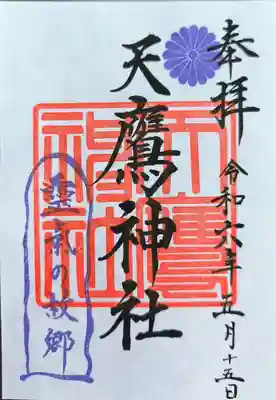 奉拝
令和六年 五月十五日
天鷹神社
天鷹神社
霊気の故郷